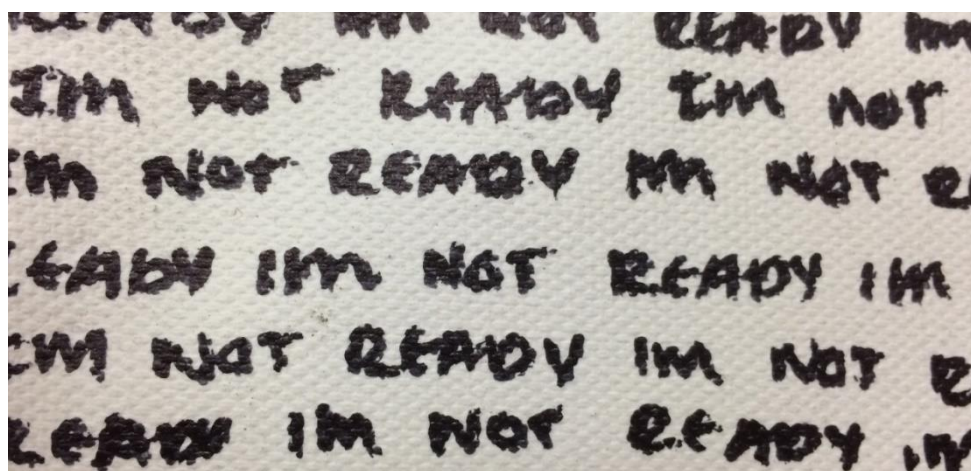 READY IM NOT READY IM
IM NOT READY IM NOT
IM NOT READY IM NOT
READY IM NOT READY IM
IM NOT READY IM NOT
READY IM NOT READY IM